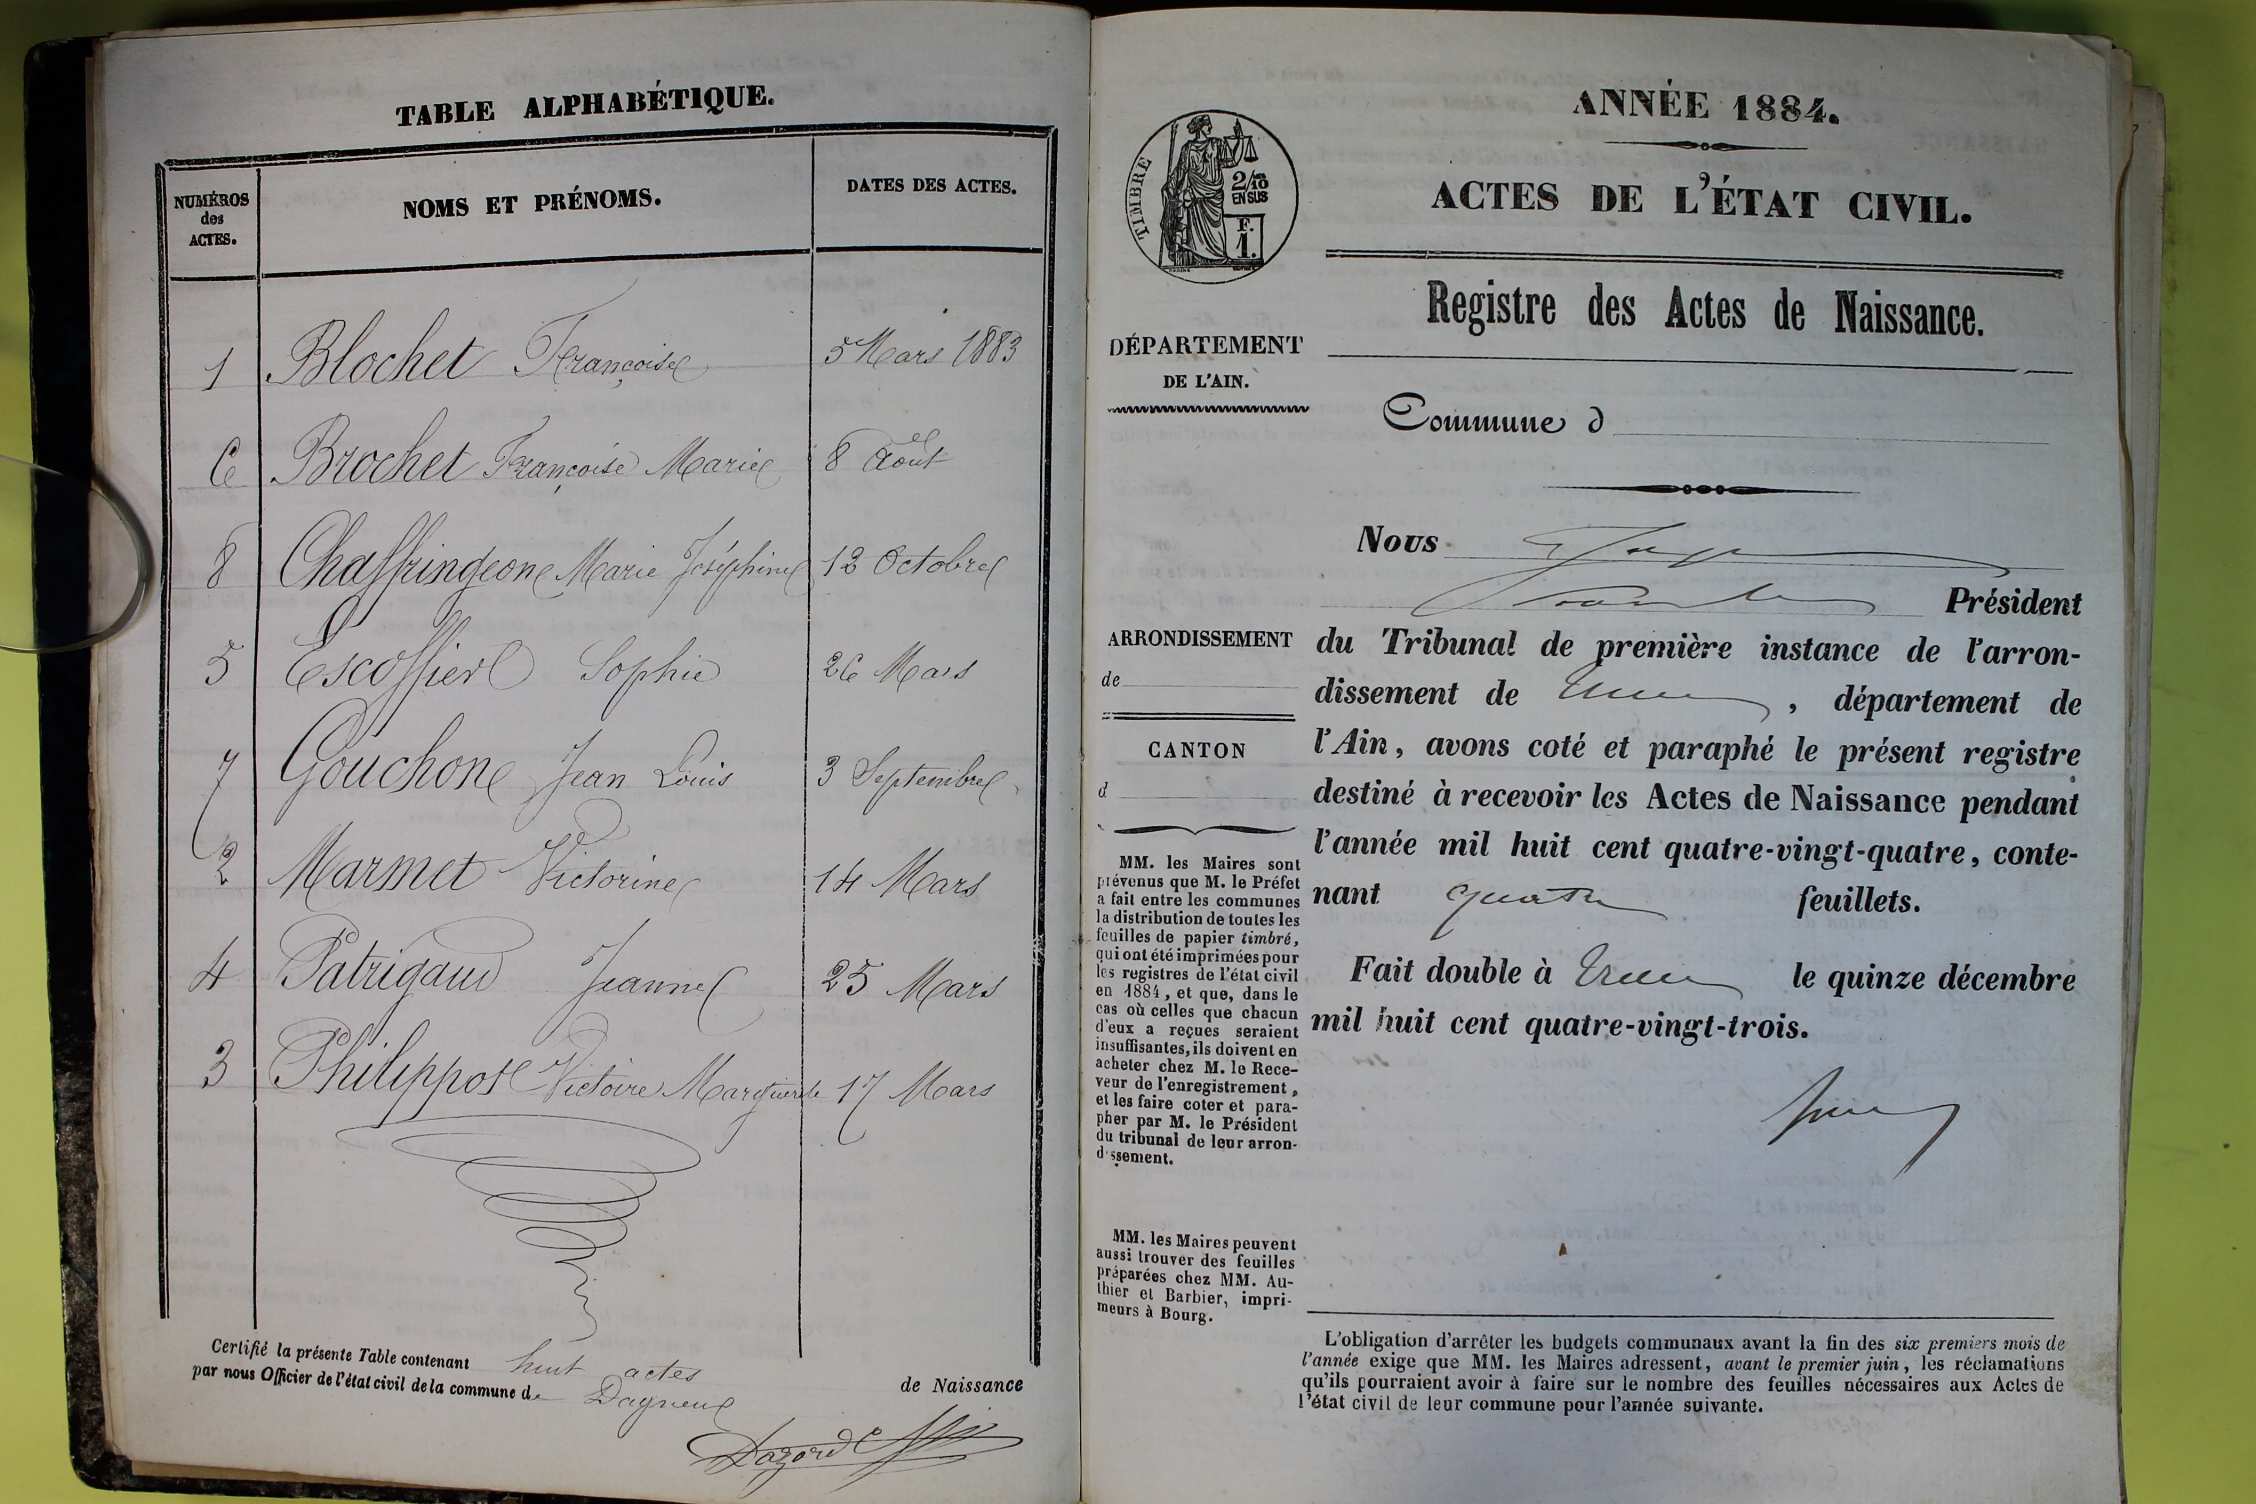 TABLE ALPHABÉTIQUE.
NUMÉROS des ACTES.
NOMS ET PRÉNOMS.
DATES DES ACTES.
1 Blochet Françoise 5 Mars 1883
6 Brochet Françoise Marie 8 Août
8 Chaffringeon Marie Joséphine 12 Octobre
5 Escoffier Sophie 26 Mars
7 Gouchon Jean Louis 3 Septembre
2 Marmet Victorine 14 Mars
4 Patrigaud Jeanne 25 Mars
3 Philippot Victoire Marguerite 17 Mars
Certifié la présente Table contenant huit actes de Naissance
par nous Officier de l'état civil de la commune de Dagneux
ANNÉE 1884.
ACTES DE L'ÉTAT CIVIL.
TIMBRE
2/10
EN SUS
F.
1.
Registre des Actes de Naissance.
DÉPARTEMENT
DE L'AIN.
Commune d
ARRONDISSEMENT
de
CANTON
d
MM. les Maires sont
prévenus que M. le Préfet
a fait entre les communes
la distribution de toutes les
feuilles de papier timbré,
qui ont été imprimées pour
les registres de l'état civil
en 1884, et que, dans le
cas où celles que chacun
d'eux a reçues seraient
insuffisantes, ils doivent en
acheter chez M. le Rece-
veur de l'enregistrement,
et les faire coter et para-
pher par M. le Président
du tribunal de leur arron-
dissement.
MM. les Maires peuvent
aussi trouver des feuilles
préparées chez MM. Au-
thier et Barbier, impri-
meurs à Bourg.
Nous
Président
du Tribunal de première instance de l'arron-
dissement de , département de
l'Ain, avons coté et paraphé le présent registre
destiné à recevoir les Actes de Naissance pendant
l'année mil huit cent quatre-vingt-quatre, conte-
nant quatre feuillets.
Fait double à le quinze décembre
mil huit cent quatre-vingt-trois.
L'obligation d'arrêter les budgets communaux avant la fin des six premiers mois de
l'année exige que MM. les Maires adressent, avant le premier juin, les réclamations
qu'ils pourraient avoir à faire sur le nombre des feuilles nécessaires aux Actes de
l'état civil de leur commune pour l'année suivante.